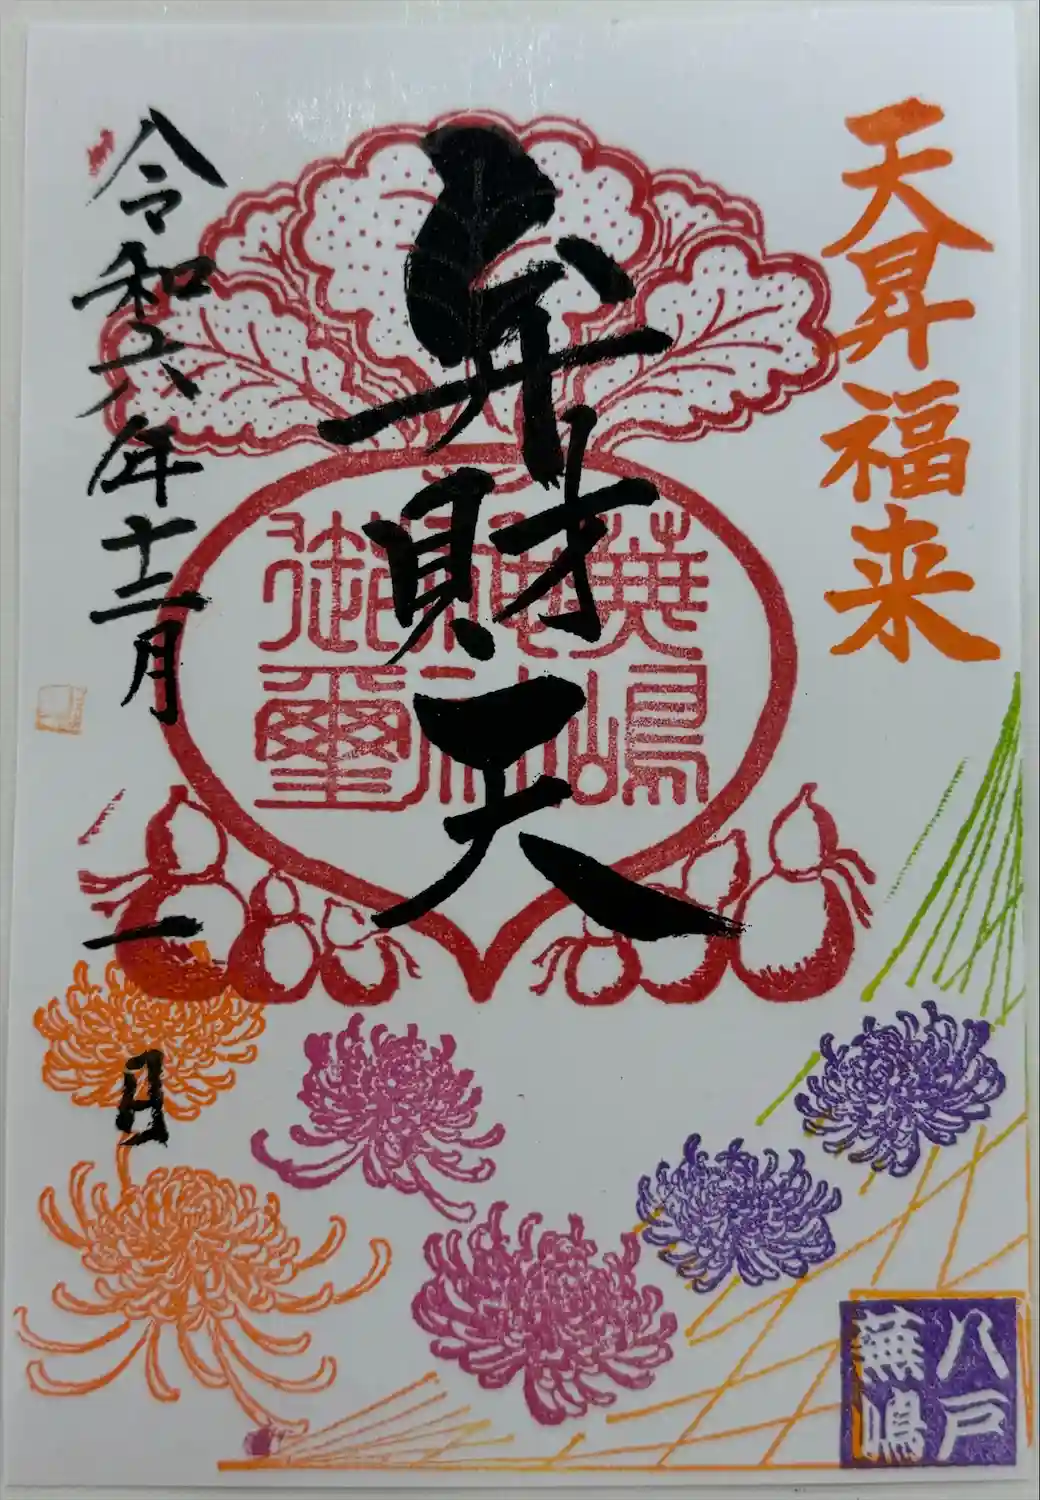 天昇福来
弁財天
蕪嶋
神社
御璽
令和六年十二月一日
八戸
蕪嶋